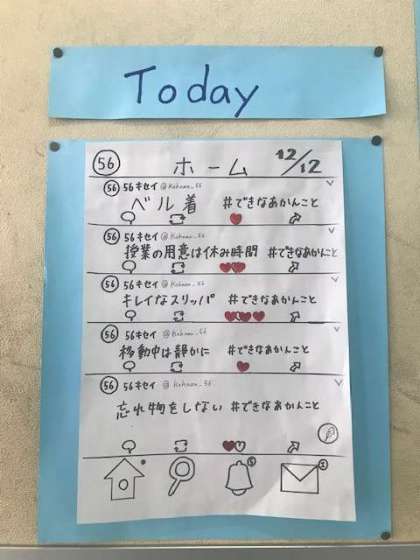 Today
56 ホーム 12/12
56 56キセイ @Kohnan_56
ベル着 #できなあかんこと
56 56キセイ @Kohnan_56
授業の用意は休み時間 #できなあかんこと
56 56キセイ @Kohnan_56
キレイなスリッパ #できなあかんこと
56 56キセイ @Kohnan_56
移動中は静かに #できなあかんこと
56 56キセイ @Kohnan_56
忘れ物をしない #できなあかんこと